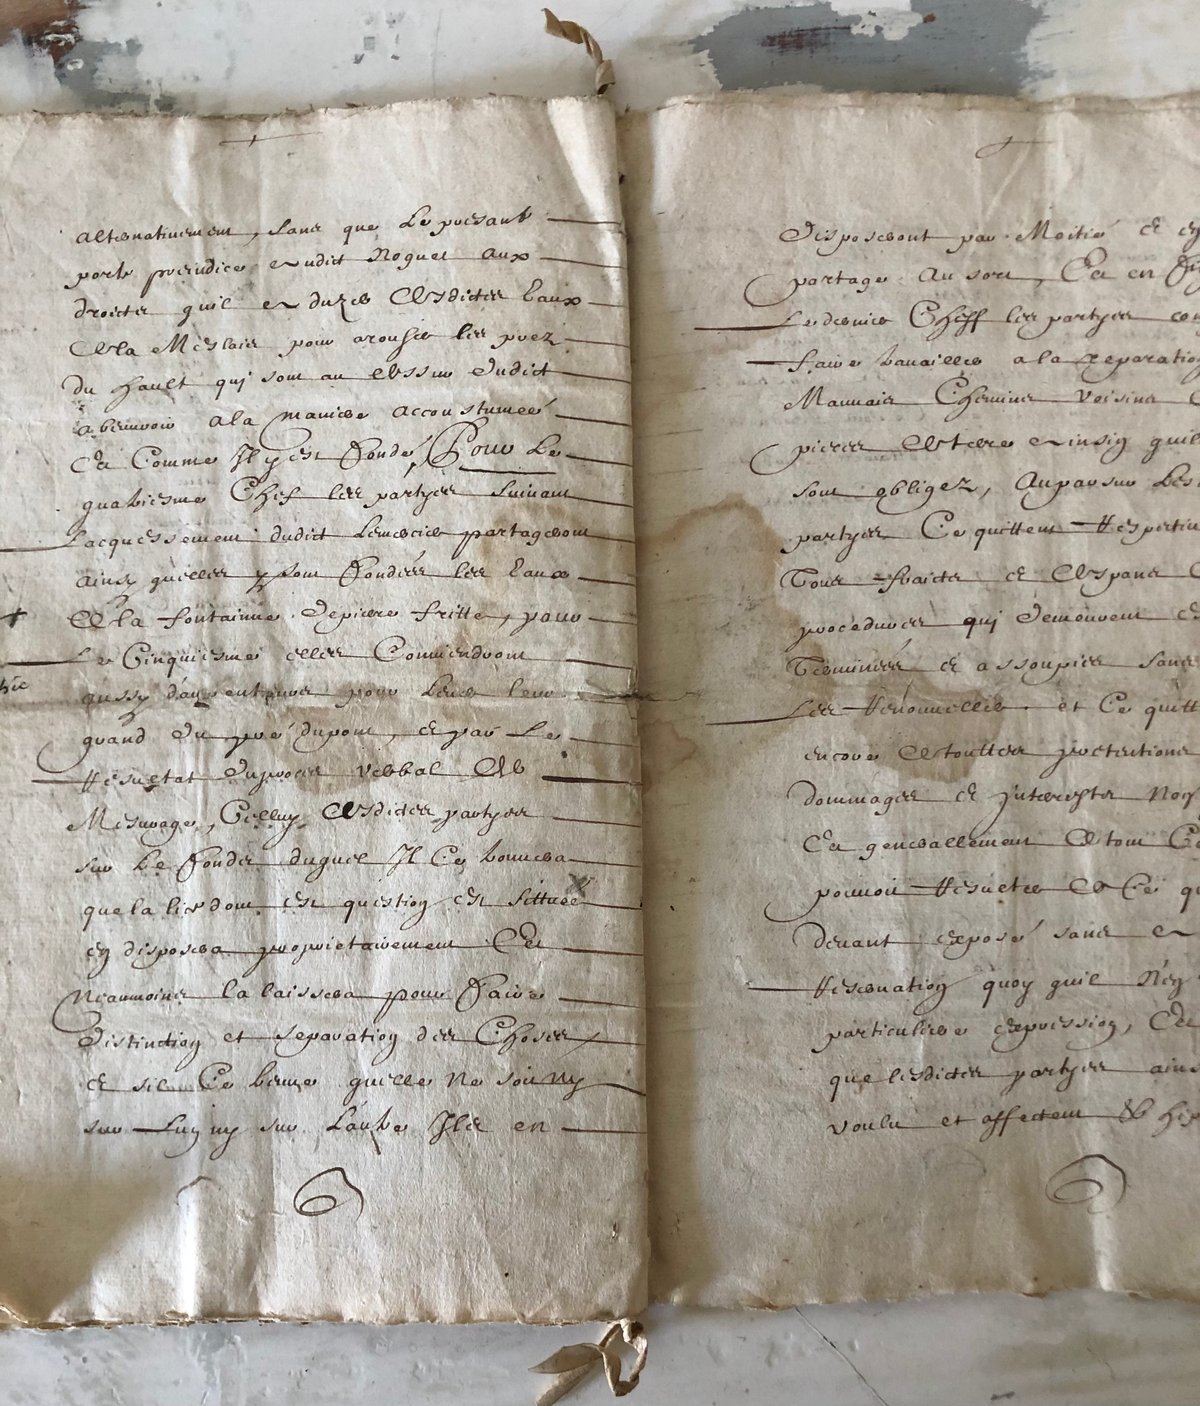 alternatiuement, sans que le presant
porte preiudice audict Noguet aux
droicts quil a duzer desdictes Eaux
de la Meslaie pour arouser les prez
du hault quj sont au dessus dudict
abeuuoir a la maniere accoustumée
Et Comme Il y est fondé, Pour Le
quatriesme Chef les partyes suiuant
Lacquessement dudict partageront
ainsy quelles y sont fondées les Eaux
de la fontainne depierre fritte, pour
Le Cinquiesme elles Conuiendront
aussy pour leur
grand du pré dupont, et par Le
Resultat duproces verbal de
Mesurage, Celluy desdictes partyes
sur le fonds duquel Il Ce trouuera
que la dont est question est sittuée
en disposera proprietairement Et
Neanmoins la laissera pour faire
distinction et separation des Choses
et sil Ce treuue quelle ne soit ny
sur Lun ny sur Lautre Ils en
disposeront par Moitié et en
partage au sort, Et en
Le dernier Cheff les partyes
faire trauailler a la reparation
Mauuais Chemins voisins
pierres et terre ainsin quil
sont obligez, Au parsus Les
partyes Ce quittent Respectiu
Tous fraicts et despans
procedures quj demeurent
Terminées et assoupies sans
Les Renouueller. et Ce quitt
encore de touttes pretentions
dommages et Interests
Et generallement de tout Ce
pouuoit Resulter de Ce
deuant exposé sans
Reseruation quoy quil Ny
particuliere expression, Et
que lesdictes partyes ains
voulu et affectent